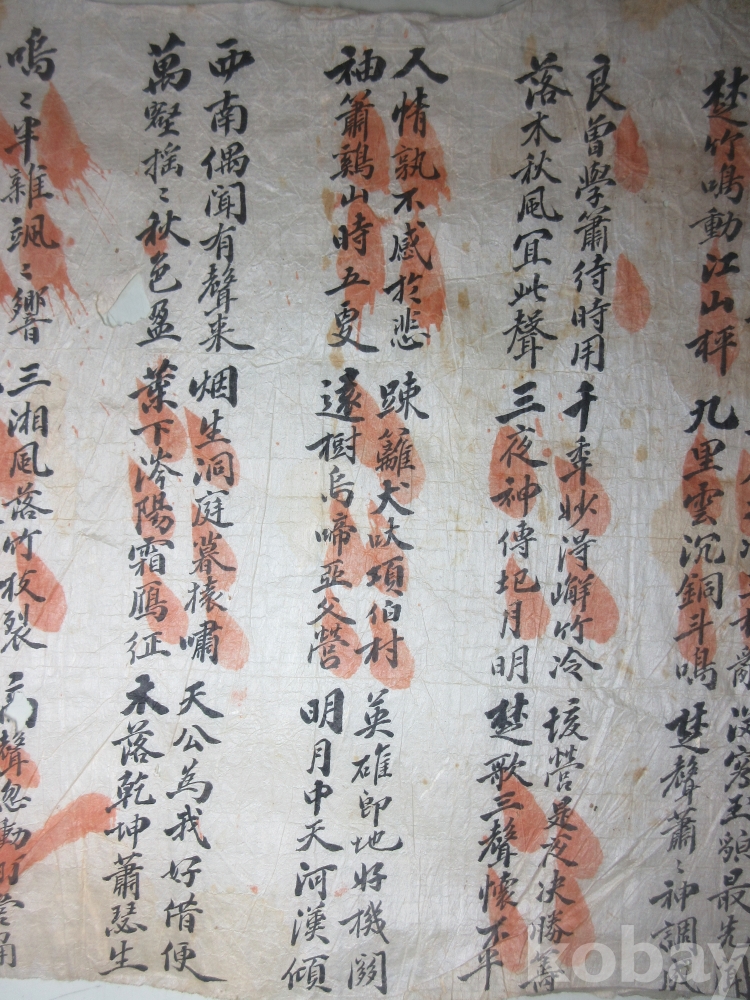 楚竹鳴動江山枰
九里雲沉銅斗鳴
最先聞
楚聲蕭〻神調
良曾學簫待時用
落木秋風宜此聲
千秊妙淂嶰竹冷
三夜神傳圯月明
垓營是夜决勝籌
楚歌三聲懷不平
人情孰不感於悲
袖簫鷄山時五更
踈籬犬吠項伯村
遠樹烏啼亞父營
英雄即地好機關
明月中天河漢傾
西南偶聞有聲来
萬壑摇〻秋色盈
烟生洞庭暮猿嘯
葉下涔陽霜鴈征
天公為我好借便
木落乾坤蕭瑟生
嗚〻半雜颯〻響
三湘風落竹枝裂
聲忽動
kobay